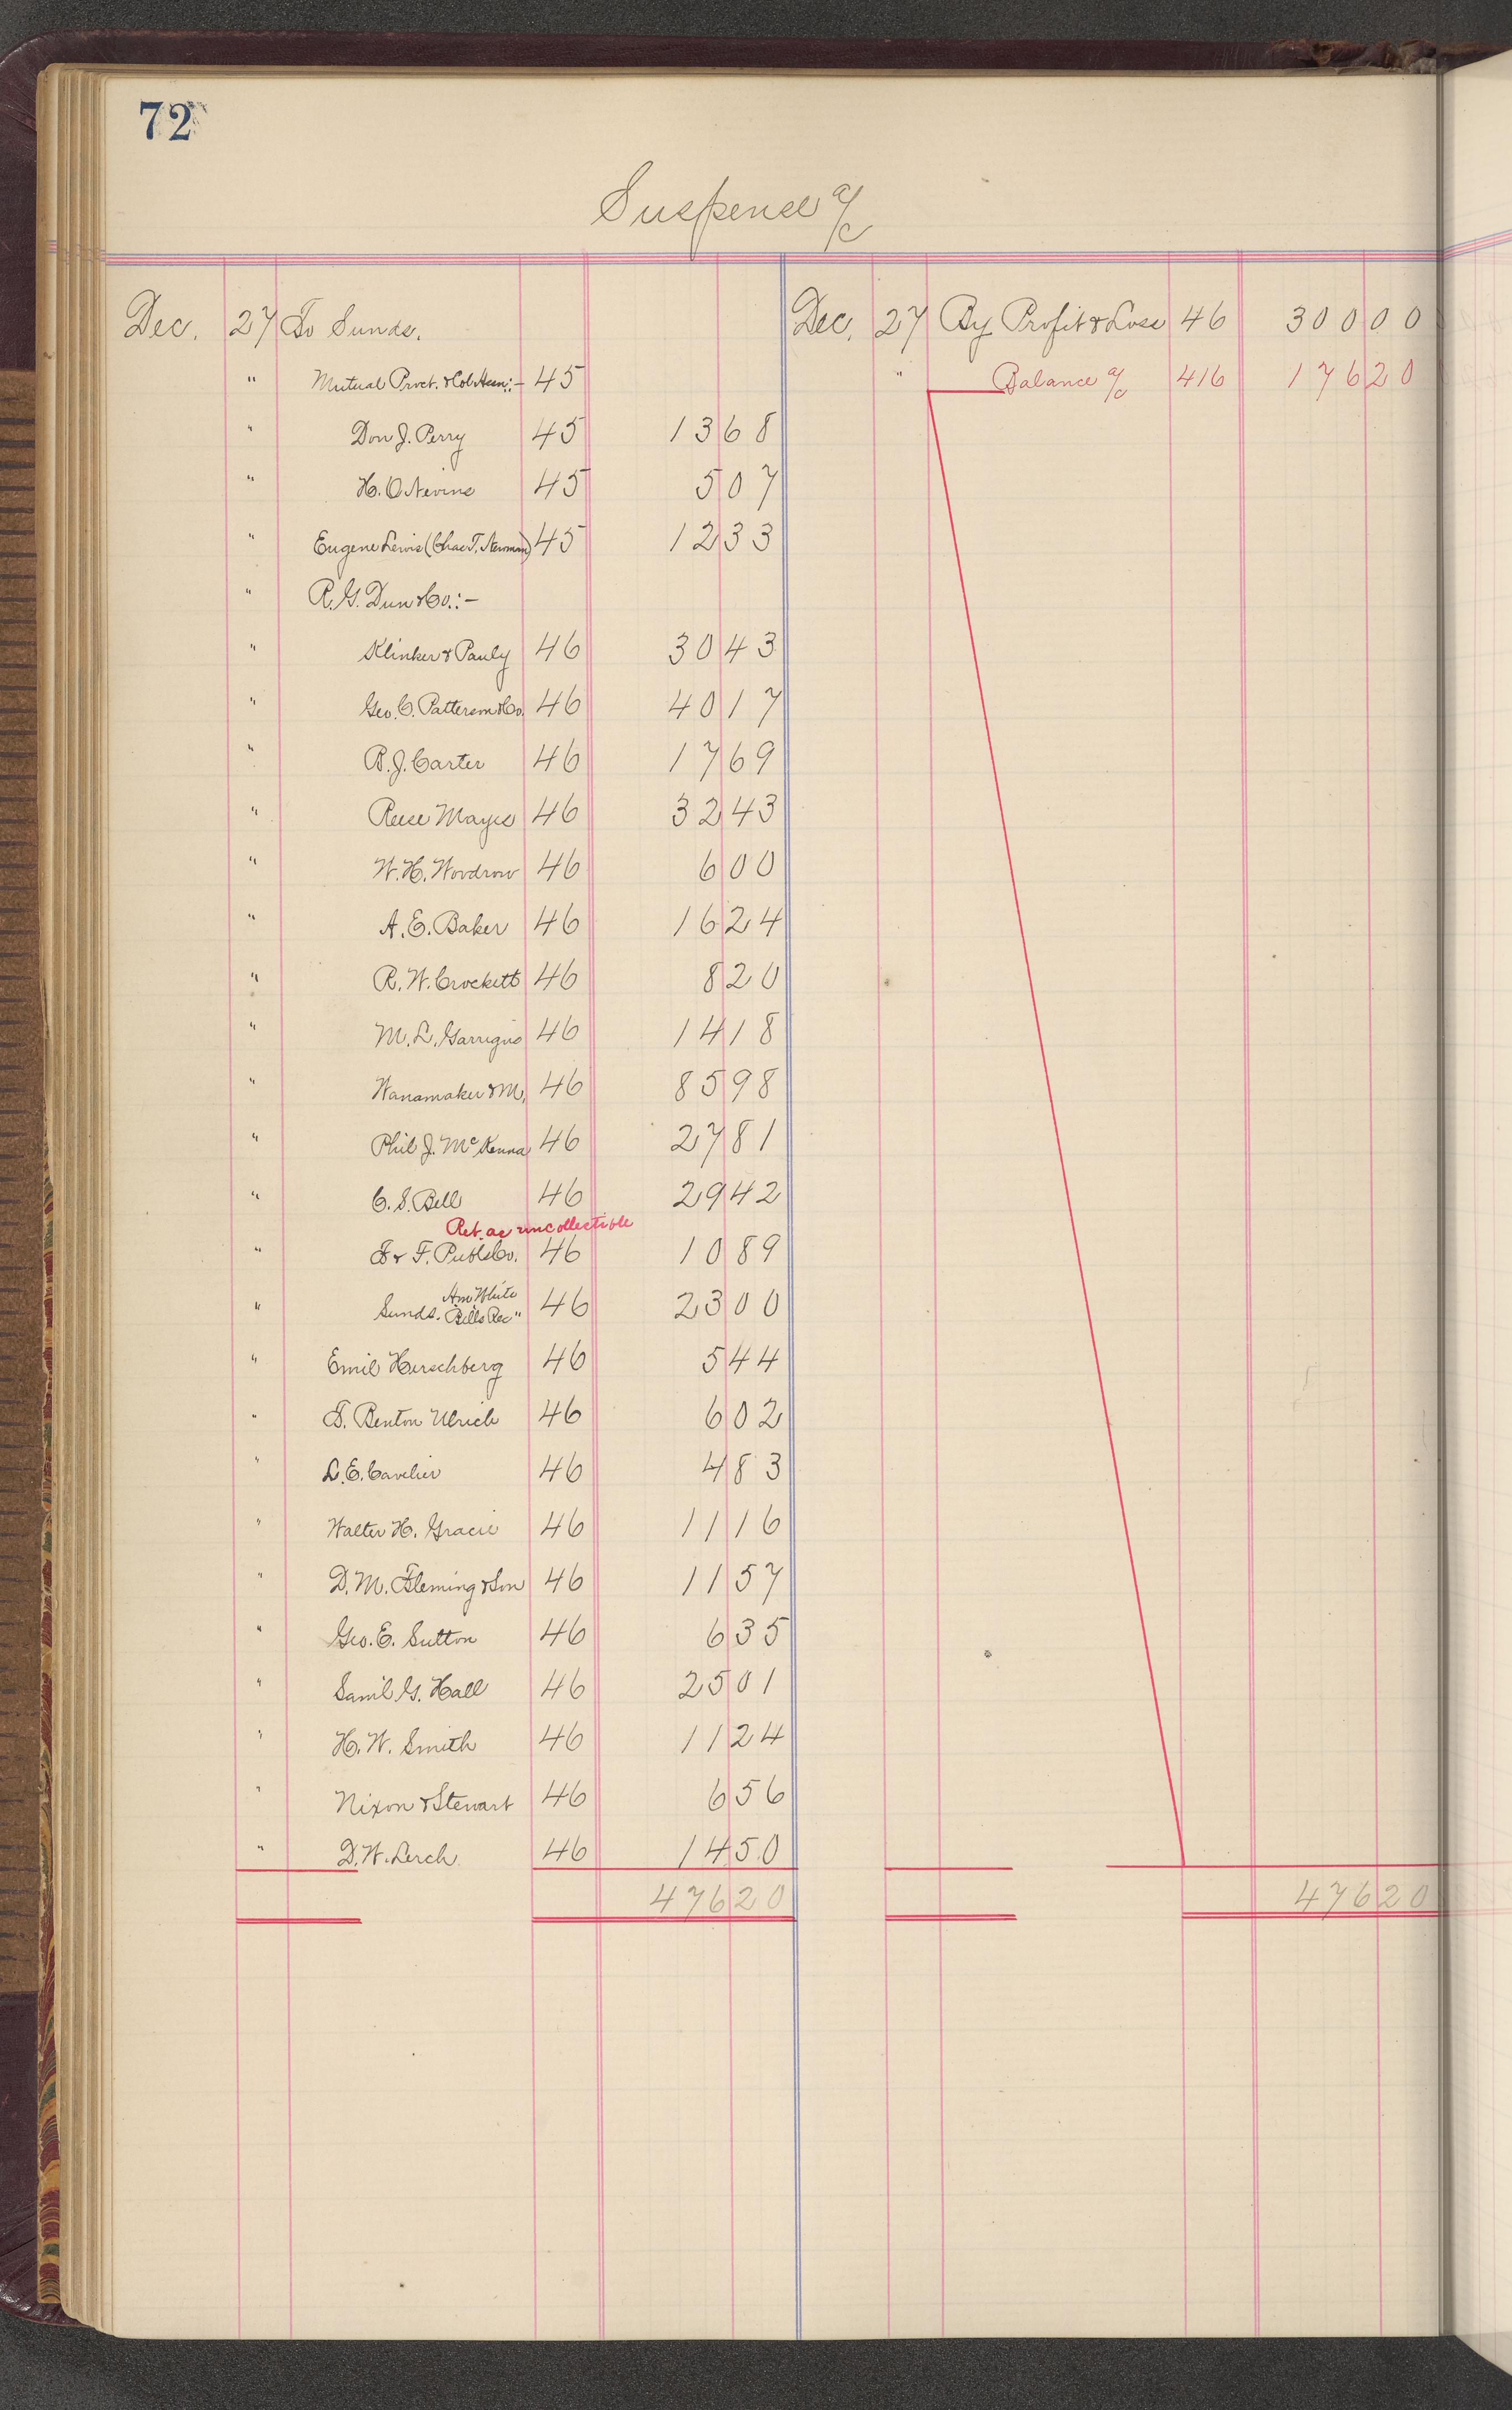 72
Suspense a/c
Dec. 27 To Sunds.
" Mutual Proct. & Col. Assn:- 45
" Don J. Perry 45 13 68
" H. O. Nevins 45 5 07
" Eugene Lewis (Chas T. Newman) 45 12 33
" R. G. Dun & Co.:-
" Klinker & Pauly 46 30 43
" Geo. C. Patterson & Co. 46 40 17
" B. J. Carter 46 17 69
" Reese Mayes 46 32 43
" W. H. Woodrow 46 6 00
" A. E. Baker 46 16 24
" R. W. Crockett 46 8 20
" M. L. Garrigus 46 14 18
" Wanamaker & M. 46 85 98
" Phil J. McKenna 46 27 81
" C. S. Bell 46 29 42
Ret. as uncollectible
" F. & F. Publs Co. 46 10 89
" Sunds. Am White "Bills Rec" 46 23 00
" Emil Herschberg 46 5 44
" F. Benton Ulrich 46 6 02
" L. E. Cavelier 46 4 83
" Walter H. Gracie 46 11 16
" D. M. Fleming & Son 46 11 57
" Geo. E. Sutton 46 6 35
" Saml G. Hall 46 25 01
" H. W. Smith 46 11 24
" Nixon & Stewart 46 6 56
" D. W. Lerch 46 14 50
476 20
Dec. 27 By Profit & Loss 46 300 00
" Balance a/c 416 176 20
476 20